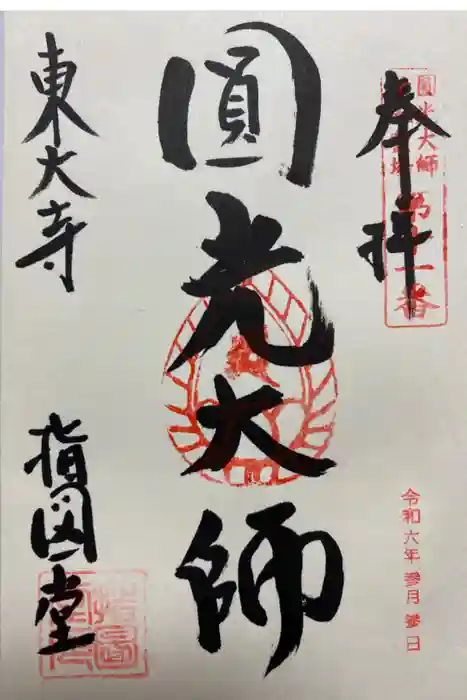 奉拝
圓光大師
第十一番
令和六年参月参日
圓光大師
東大寺
指図堂